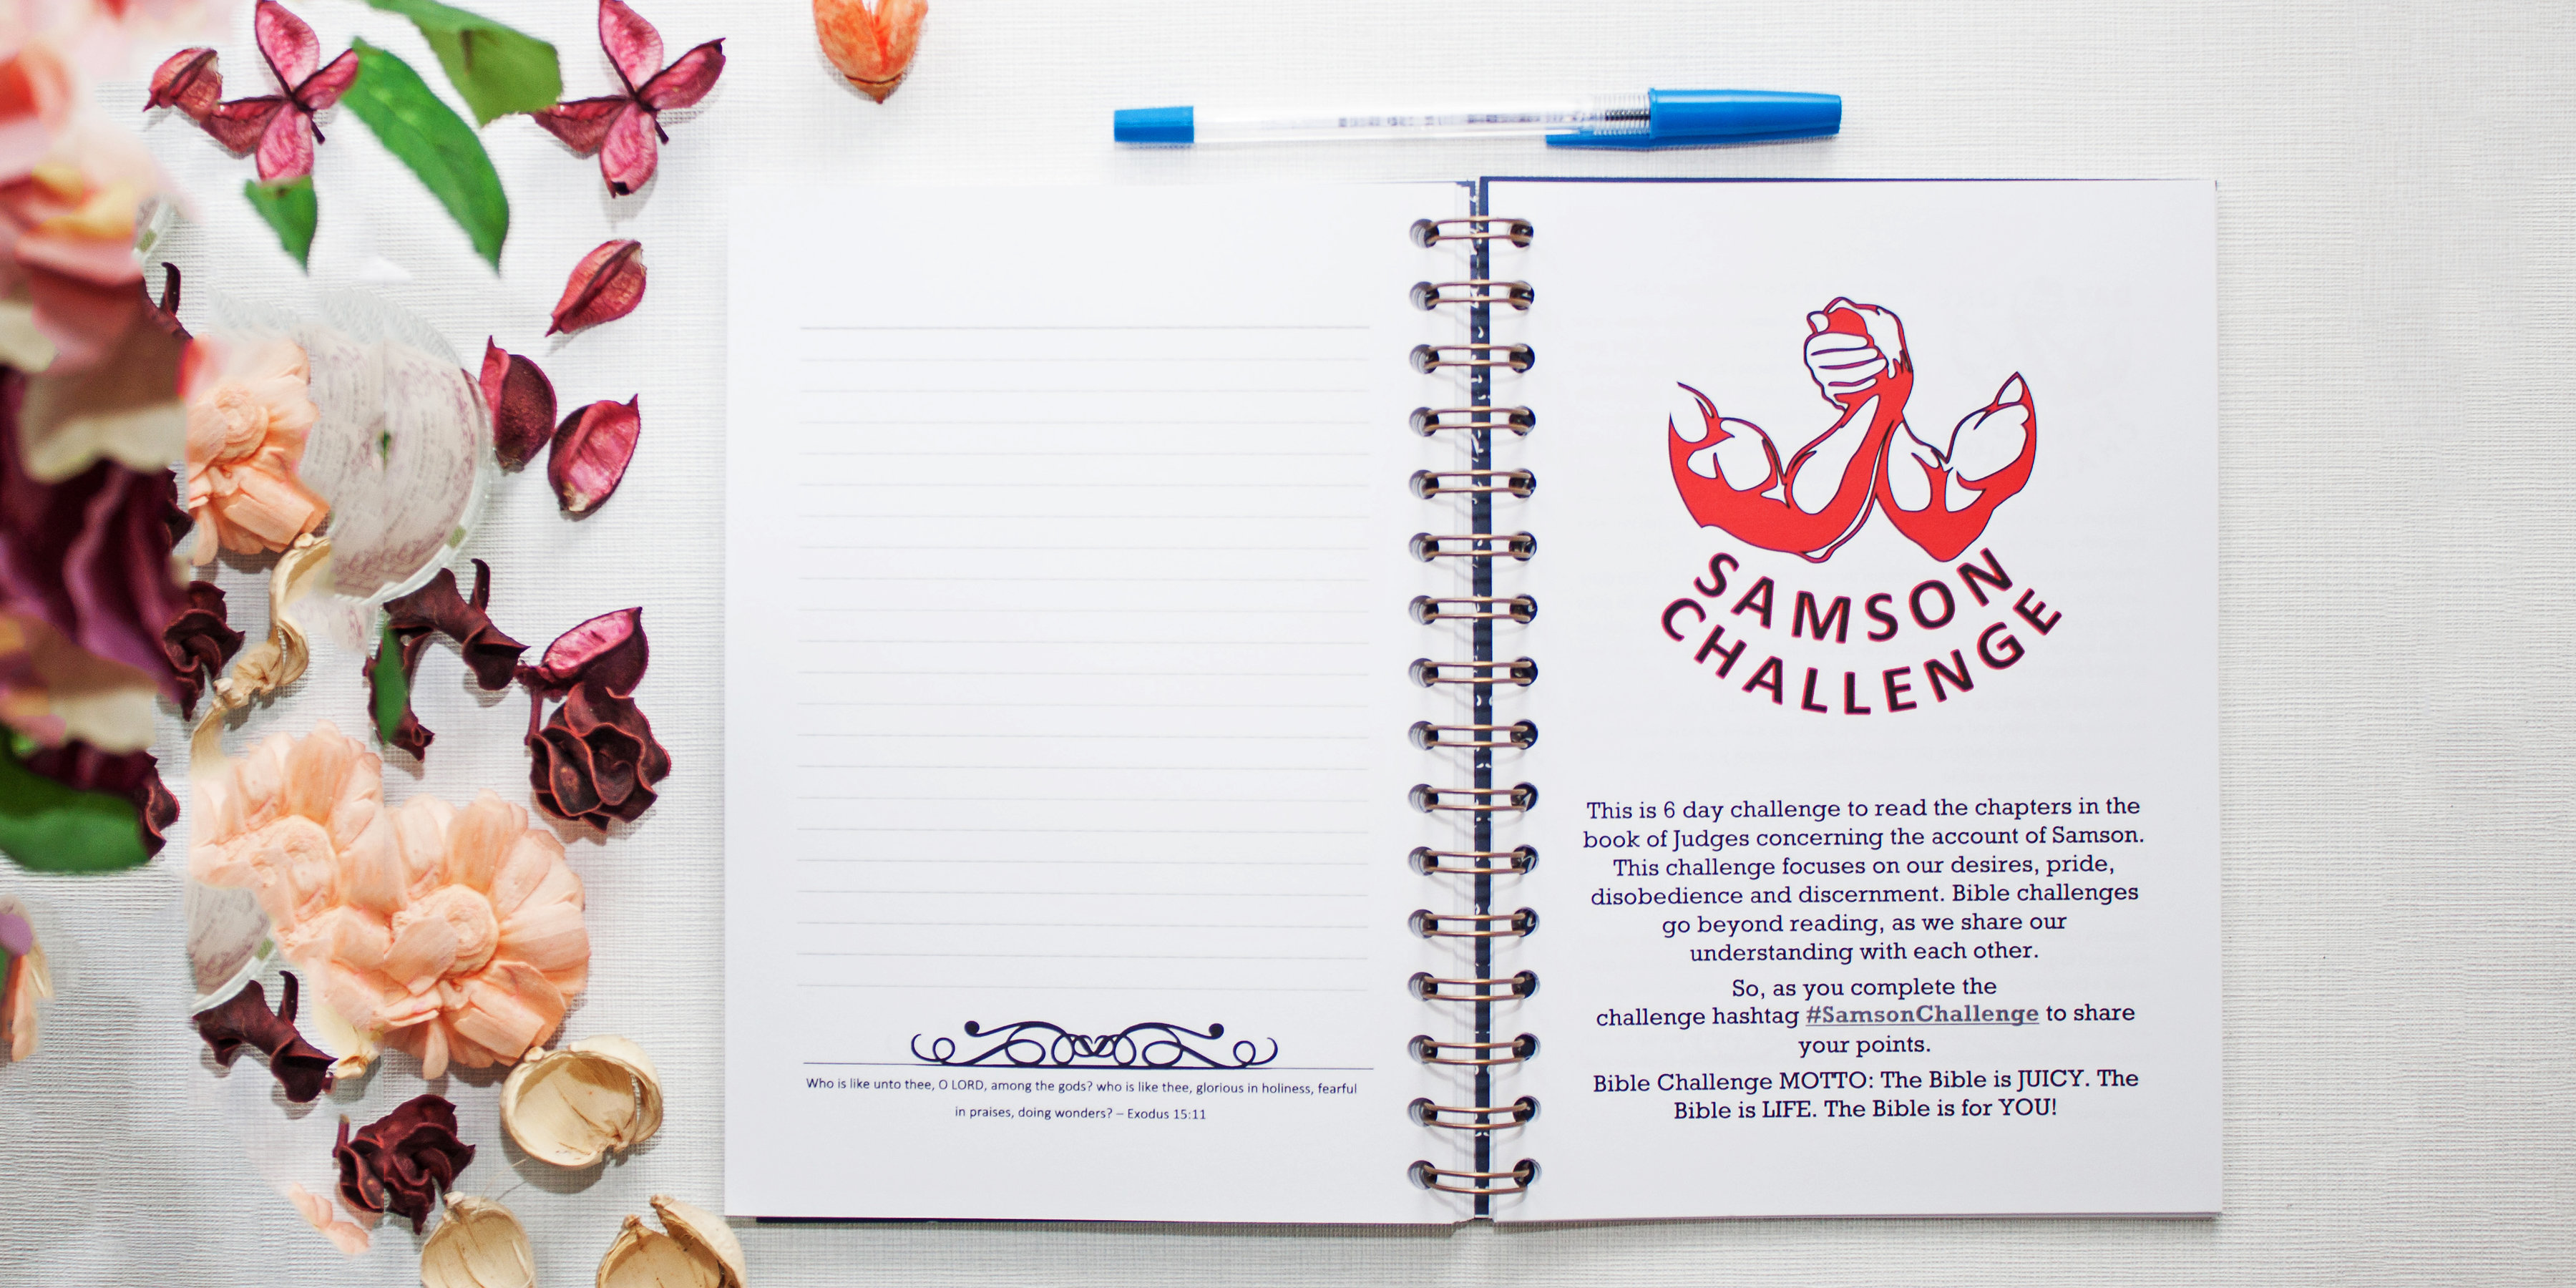 Who is like unto thee, O LORD, among the gods? who is like thee, glorious in holiness, fearful
in praises, doing wonders? – Exodus 15:11
SAMSON
CHALLENGE
This is 6 day challenge to read the chapters in the
book of Judges concerning the account of Samson.
This challenge focuses on our desires, pride,
disobedience and discernment. Bible challenges
go beyond reading, as we share our
understanding with each other.
So, as you complete the
challenge hashtag #SamsonChallenge to share
your points.
Bible Challenge MOTTO: The Bible is JUICY. The
Bible is LIFE. The Bible is for YOU!